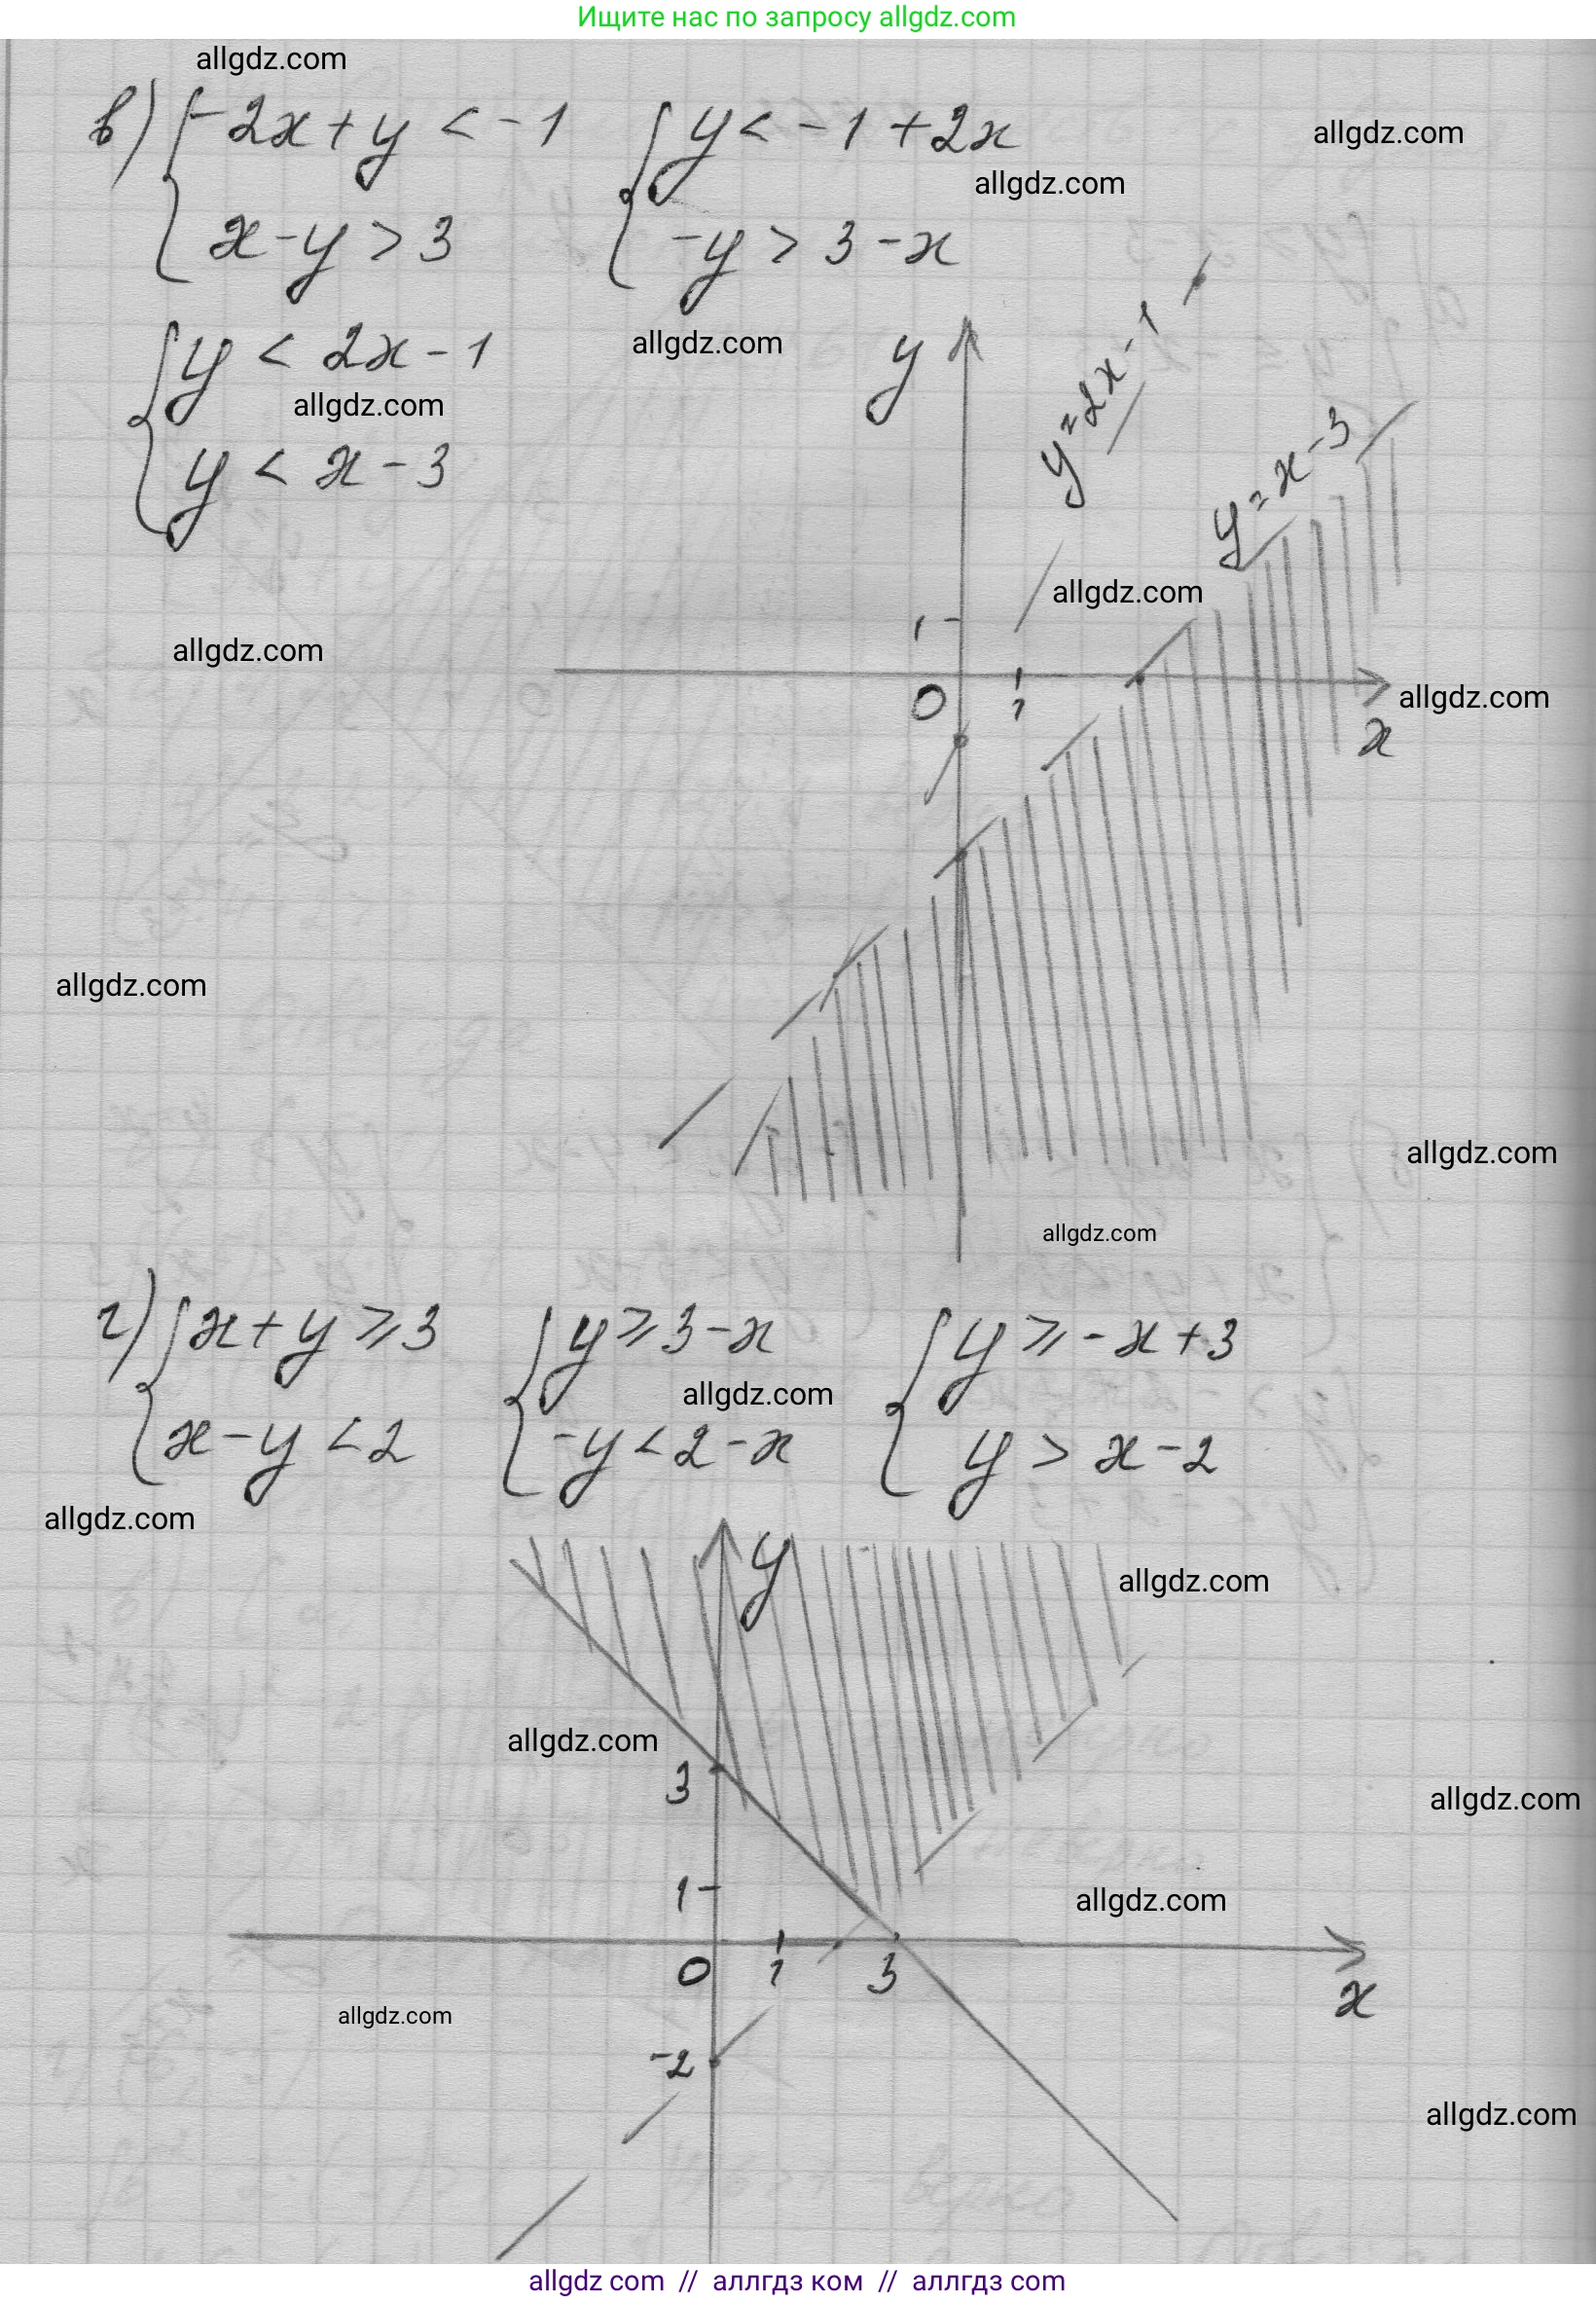 Ищите нас по запросу allgdz.com
allgdz.com
в) { -2x + y < -1 { y < -1 + 2x
allgdz.com
allgdz.com
x - y > 3 -y > 3 - x
{ y < 2x - 1
allgdz.com
y
y = 2x - 1
allgdz.com
y < x - 3
y = x - 3
allgdz.com
1
allgdz.com
0 1
allgdz.com
x
allgdz.com
allgdz.com
allgdz.com
г) { x + y ⩾ 3 { y ⩾ 3 - x { y ⩾ -x + 3
allgdz.com
x - y < 2 -y < 2 - x y > x - 2
allgdz.com
y
allgdz.com
allgdz.com
3
allgdz.com
1
allgdz.com
0 1 3
x
allgdz.com
-2
allgdz.com
allgdz com // аллгдз ком // аллгдз com